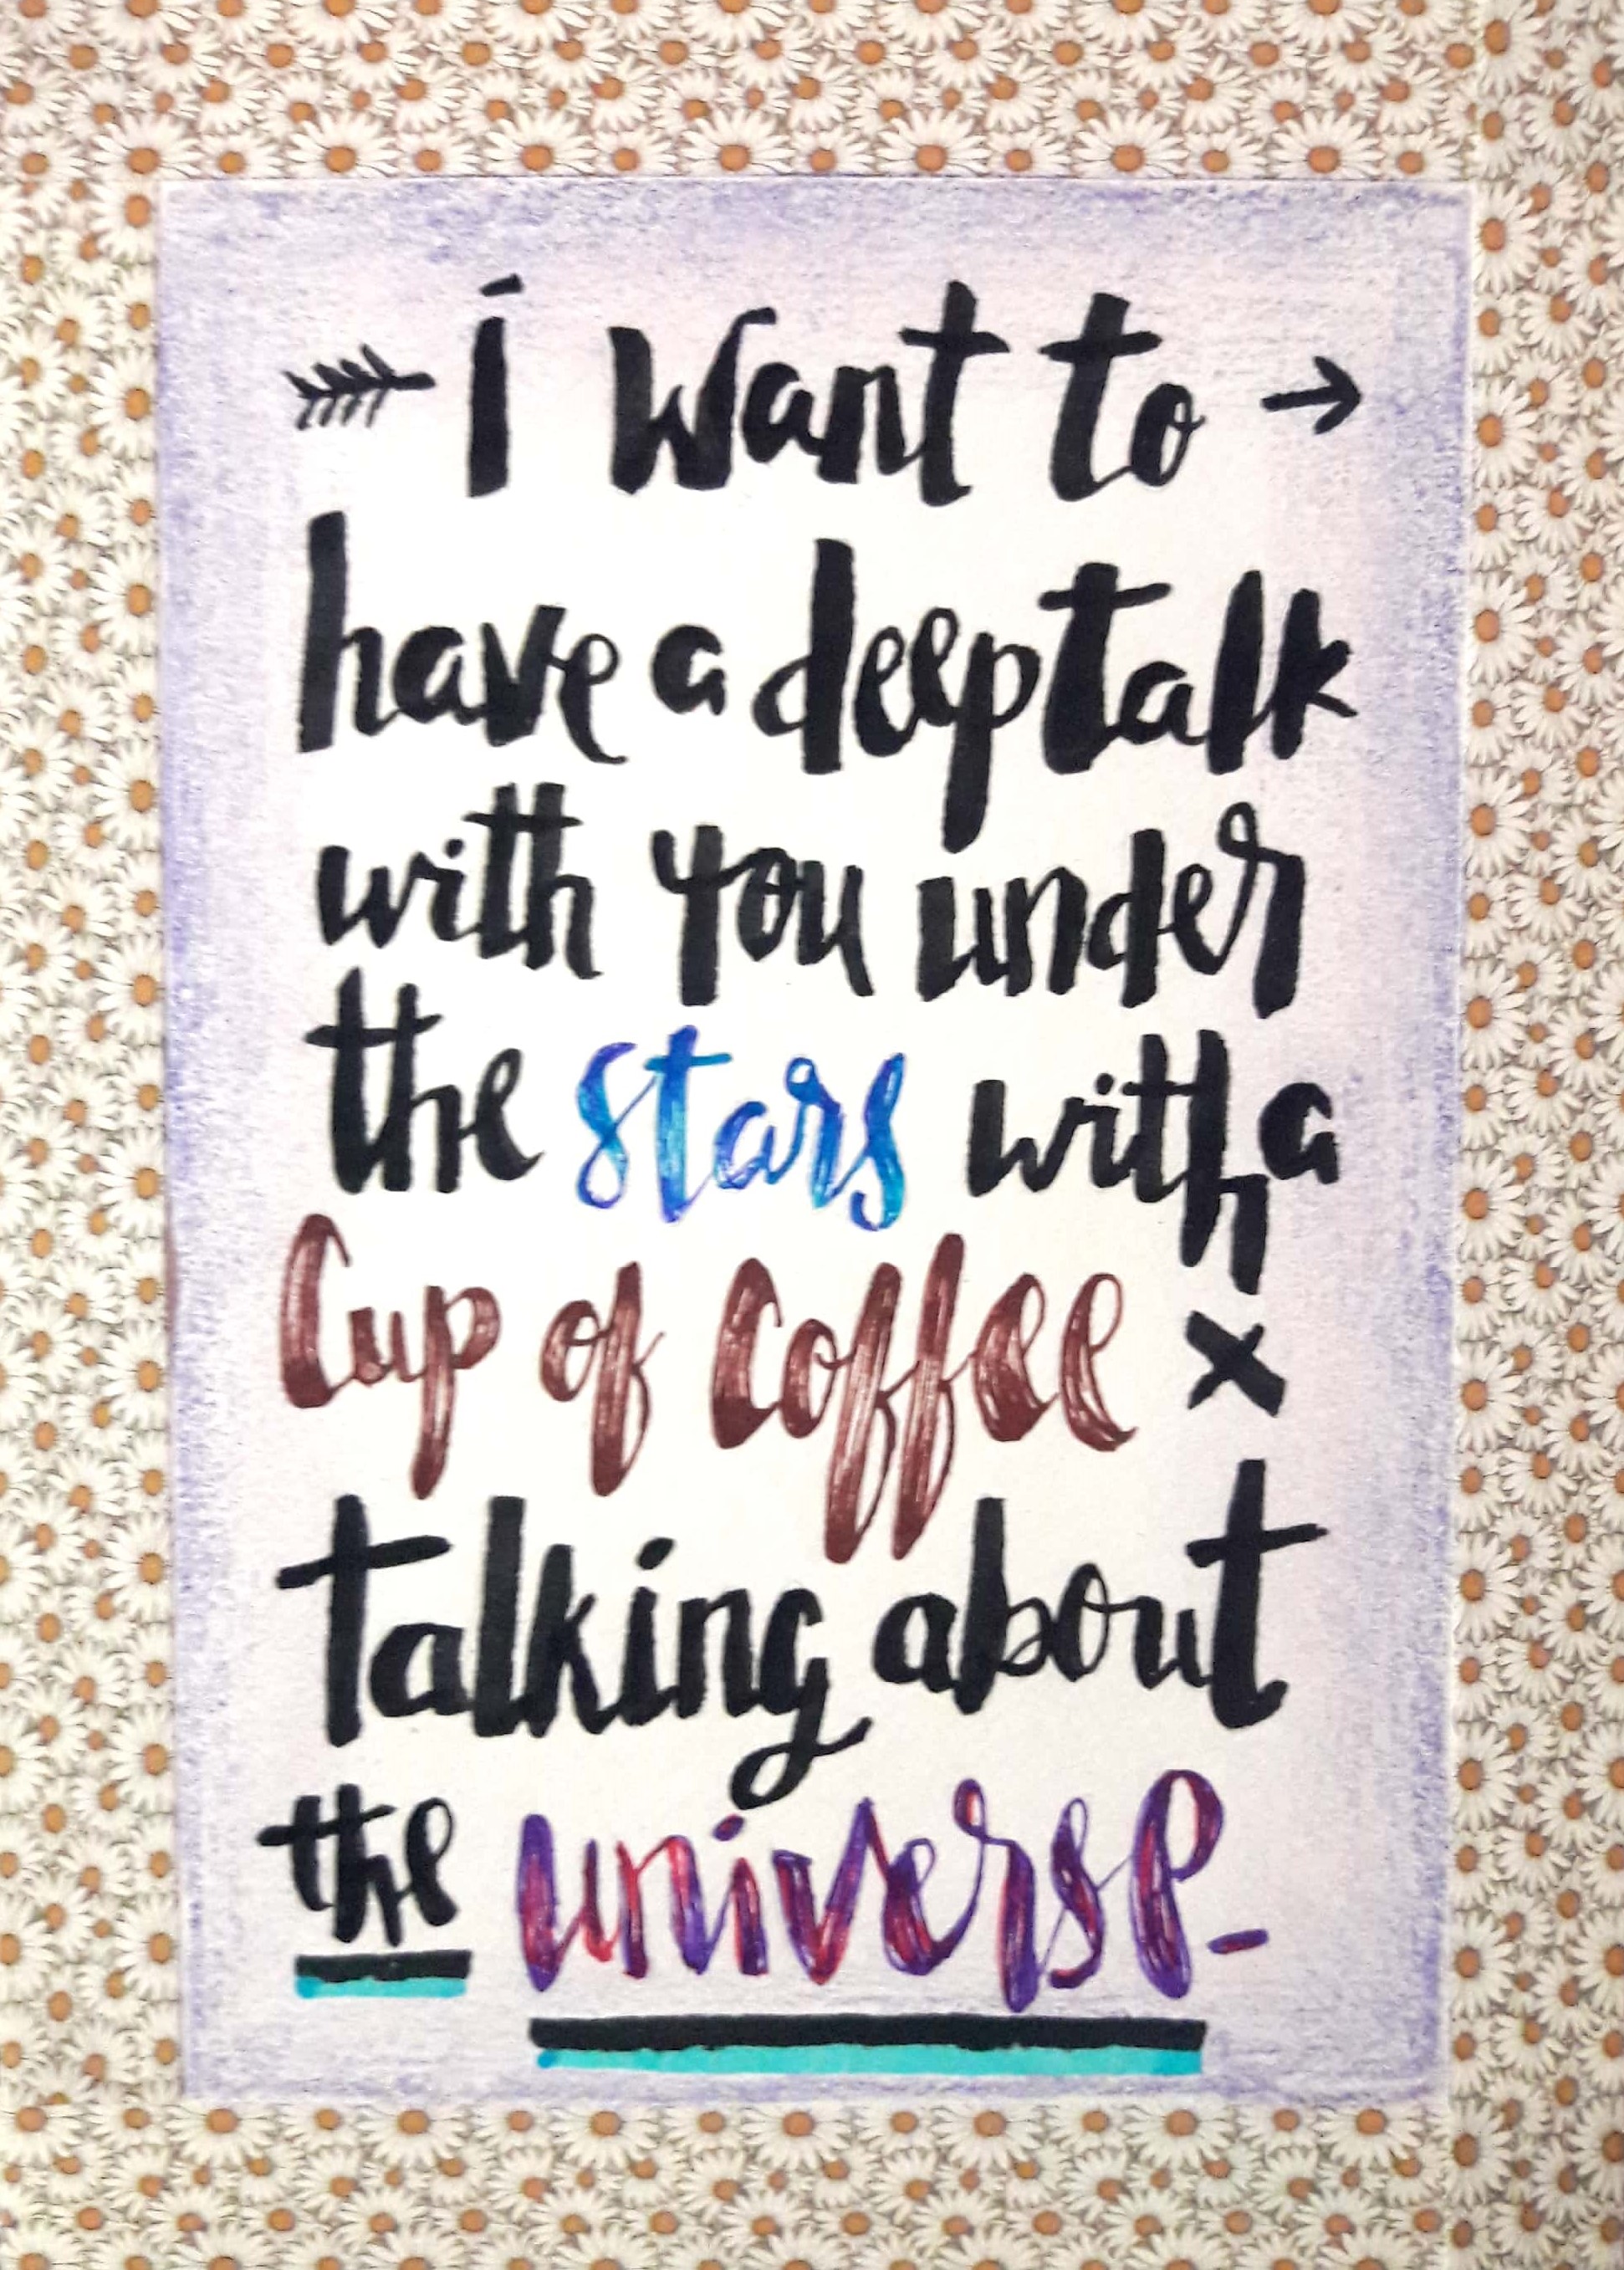 i want to
have a deep talk
with you under
the stars with a
Cup of Coffee x
talking about
the universe-